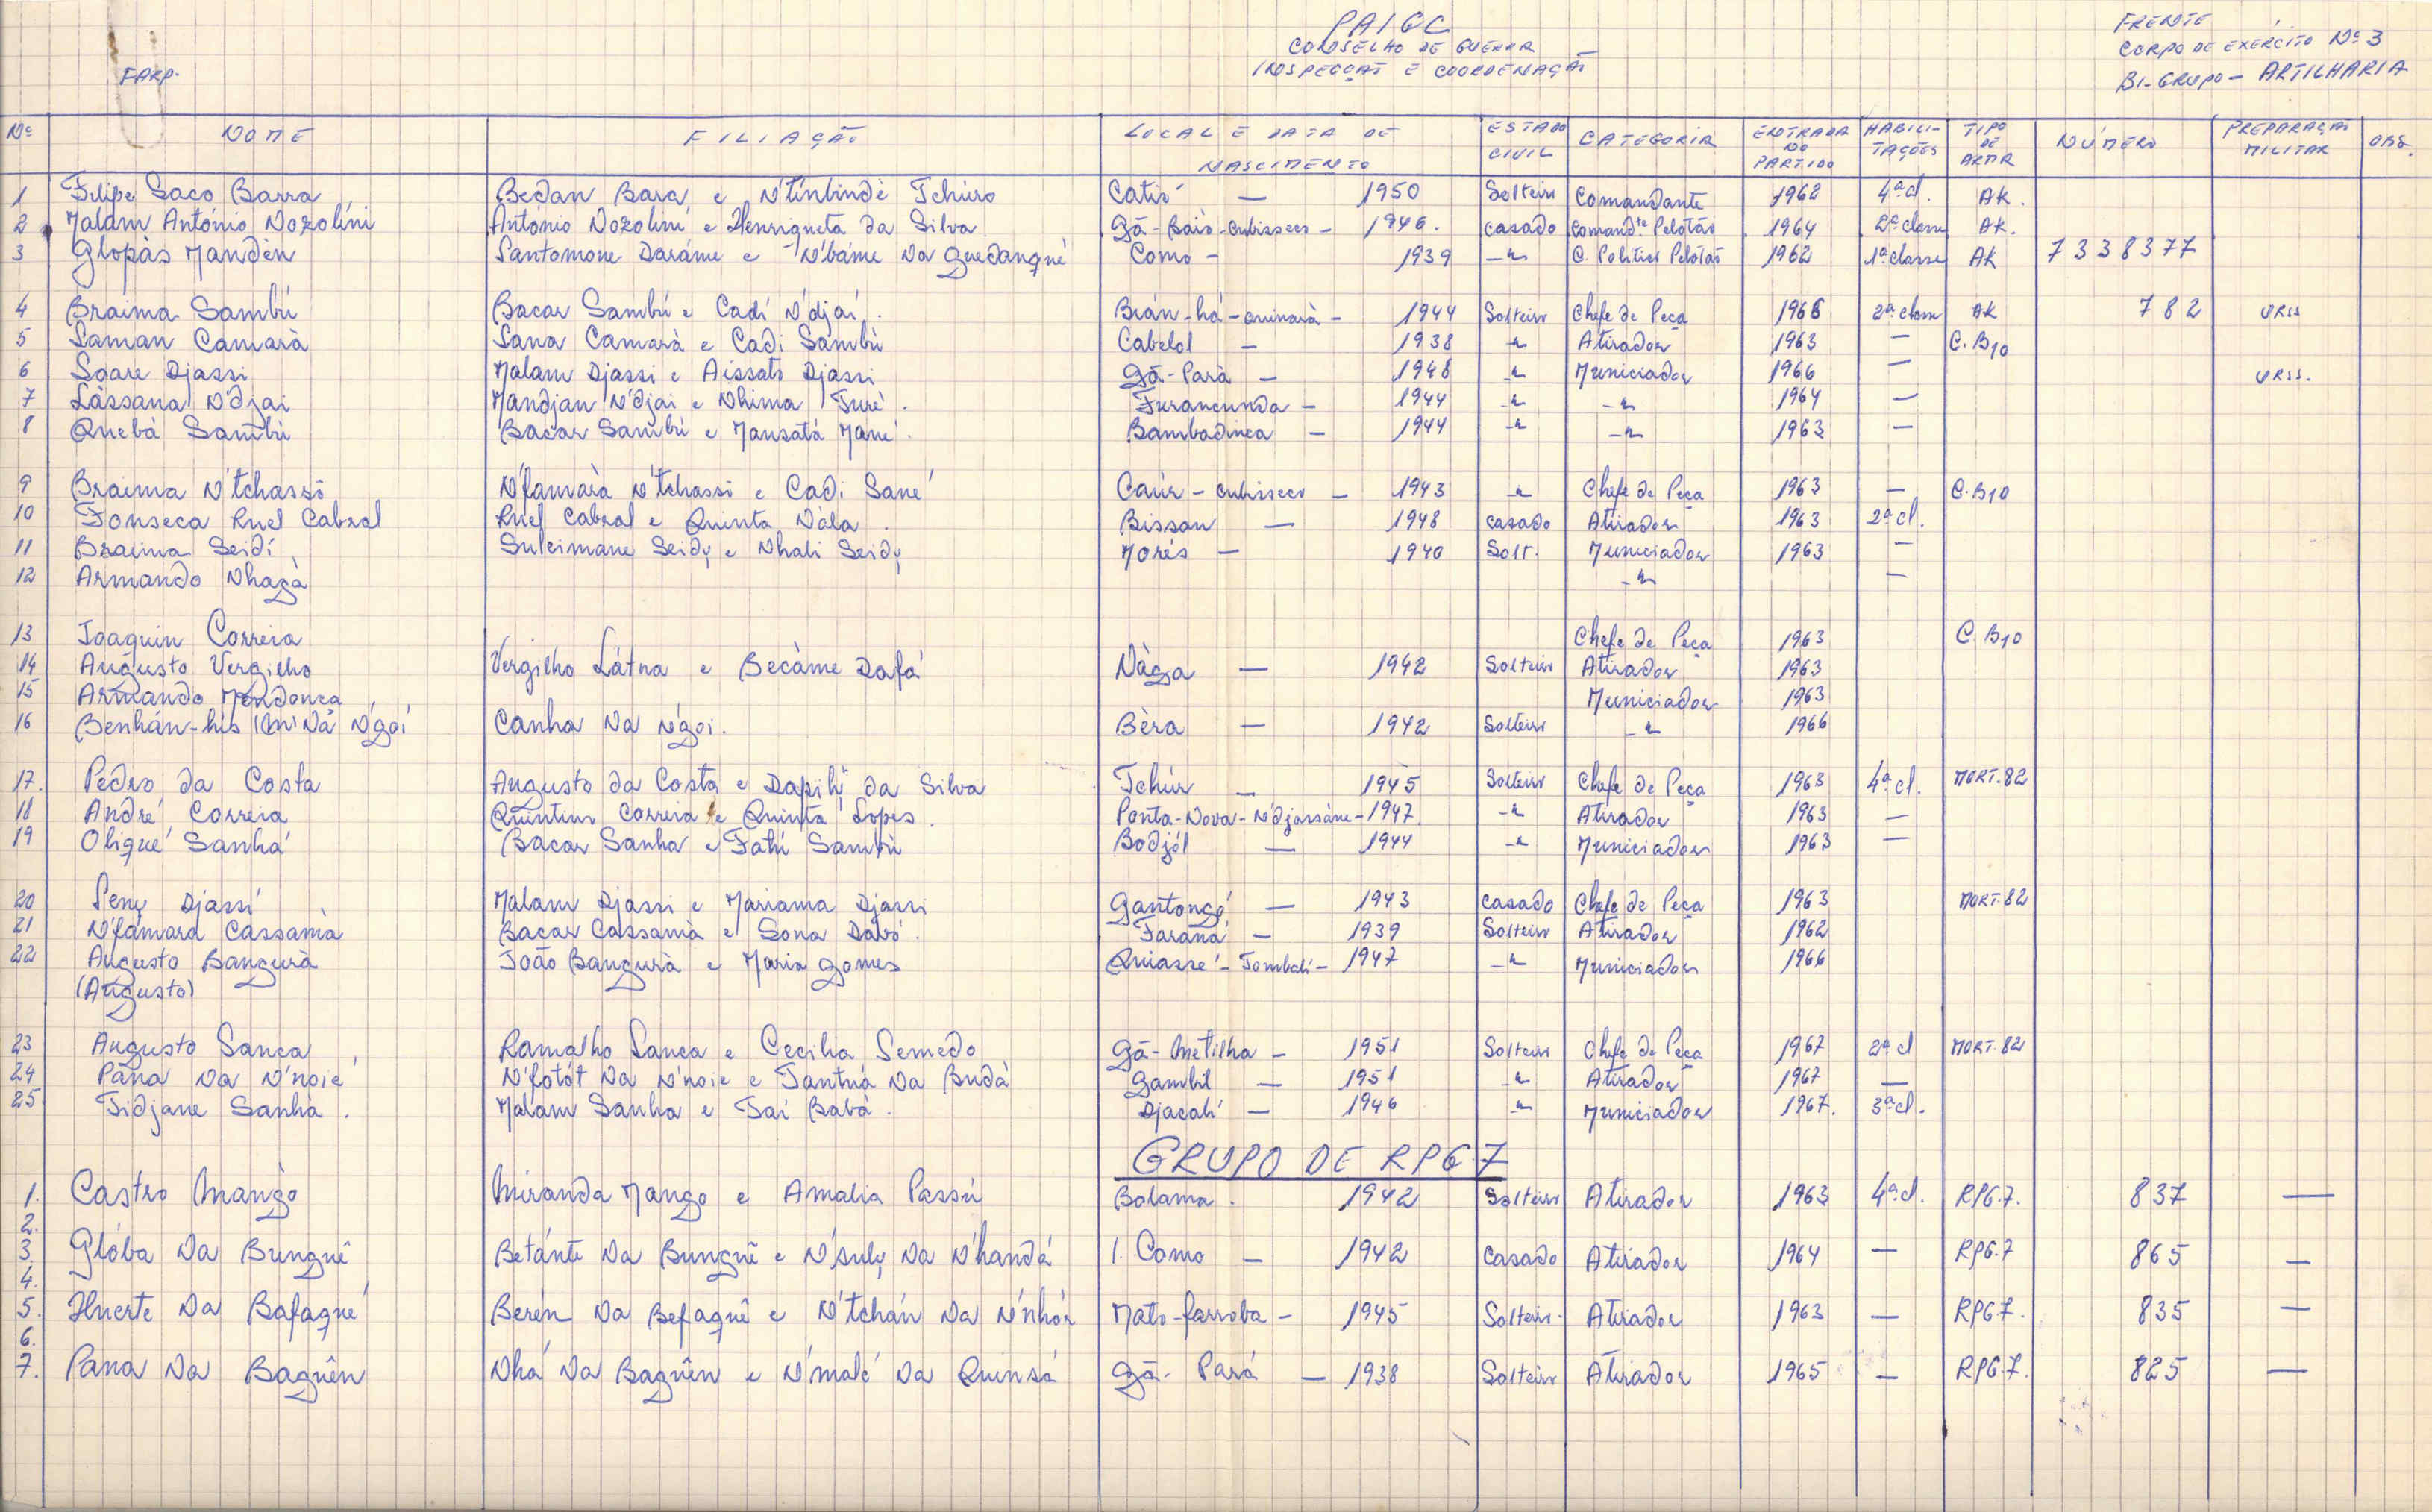 FARP.
PAIGC
CONSELHO DE GUERRA
INSPECÇÃO E COORDENAÇÃO
FRENTE
CORPO DE EXÉRCITO Nº 3
BI-GRUPO - ARTILHARIA
Nº NOME FILIAÇÃO LOCAL E DATA DE NASCIMENTO ESTADO CIVIL CATEGORIA ENTRADA NO PARTIDO HABILITAÇÕES TIPO DE ARMA NÚMERO PREPARAÇÃO MILITAR OBS.
1 Filipe Saco Barra Bedan Bara e N'tinbindè Tchuro Catió — 1950 Solteiro Comandante 1962 4ª cl. AK.
2 Malam António Nozolini António Nozolini e Henriqueta da Silva Gã-Baió-Cubisseco - 1946. casado Comandte Pelotão 1964 2ª classe AK.
3 Glopàs Mandèn Santomone Daráme e N'báme Na Guedanqué Como - 1939 -"- C. Politico Pelotão 1962 1ª classe AK 7338377
4 Braima Sambú Bacar Sambú e Cadí N'djaí. Brán-há-quinará - 1944 Solteiro Chefe de Peça 1966 2ª classe AK 782 URSS
5 Saman Camarà Sana Camarà e Cadi Sambù Cabelol — 1938 -"- Atirador 1963 — C. B10
6 Soare Djassi Malam Djassi e Aissato Djassi Gã-Parà — 1948 -"- Municiador 1966 — URSS.
7 Làssana N'djai Mandjan N'djai e Nhima Turé. Turancunda - 1944 -"- -"- 1964 —
8 Quebá Sambú Bacar Sambú e Mansatá Mané. Bambadinca — 1944 -"- -"- 1963 —
9 Braima N'tchassõ N'famarà N'tchassõ e Cadi Sané Caúr - Cubisseco — 1943 -"- Chefe de Peça 1963 — C. B10
10 Fonseca Ruel Cabral Ruel Cabral e Quinta Nála. Bissau — 1948 casado Atirador 1963 2ª cl.
11 Braima Seidí Suleimane Seidy e Nhali Seidy Morés — 1940 Solt. Municiador 1963 —
12 Armando Nhagà -"- —
13 Joaquin Correia Chefe de Peça 1963 C. B10
14 Augusto Vergilho Vergilho Látna e Becàme Dafá Nàga — 1942 Solteiro Atirador 1963
15 Armando Mendonça Municiador 1963
16 Benhán-his Na N'goi Canha Na N'goi. Bèra — 1942 Solteiro -"- 1966
17. Pedro da Costa Augusto da Costa e Dapilí da Silva Tchúr — 1945 Solteiro Chefe de Peça 1963 4ª cl. MORT. 82
18 André Correia Quintin Correia e Quinta Lopes. Ponta-Nova-N'djassáne-1947. -"- Atirador 1963 —
19 Oliqué Sanhá Bacar Sanha e Fatú Sambù Bodjól — 1944 -"- Municiador 1963 —
20 Seny Djassí Malam Djassi e Mariama Djassi Gantongó — 1943 casado Chefe de Peça 1963 MORT. 82
21 N'fámara Cassamà Bacar Cassamà e Sona Dabó. Faraná — 1939 Solteiro Atirador 1962
22 Augusto Bangurà João Bangurà e Maria Gomes Quiassé - Tombali - 1947 -"- Municiador 1966
(Augusto)
23 Augusto Sanca Ramalho Sanca e Cecilia Semedo Gã-Metilha - 1951 Solteiro Chefe de Peça 1967 2ª cl MORT. 82
24 Pana Na N'noié N'fotót Na N'noie e Tantná Na Budá Gambil — 1951 -"- Atirador 1967 —
25 Tidjane Sanhà. Malam Sanha e Taí Babá. Djacali — 1946 -"- Municiador 1967. 3ª cl.
GRUPO DE RPG 7
1. Castro Mangò Miranda Mango e Amalia Passú Bolama. 1942 Solteiro Atirador 1963 4ª cl. RPG.7. 837 —
2.
3. Glóba Na Bunguê Betánte Na Bunguê e N'suly Na N'handá I. Como — 1942 Casado Atirador 1964 — RPG.7 865 —
4.
5. Huerte Na Bafaqué Berén Na Befaquê e N'tchán Na N'nhór Mato-farroba - 1945 Solteiro Atirador 1963 — RPG 7. 835 —
6.
7. Pana Na Baguên Nhá Na Baguên e N'malé Na Quinsá Gã-Pará — 1938 Solteiro Atirador 1965 — RPG.7. 825 —